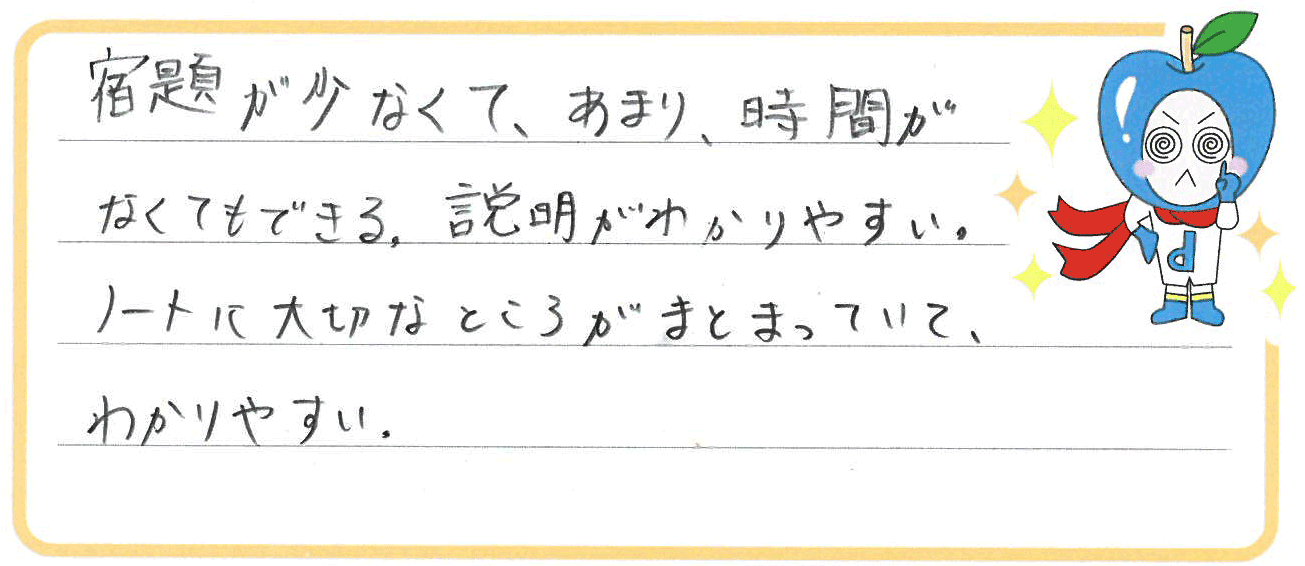 宿題が少なくて、あまり、時間が
なくてもできる。説明がわかりやすい。
ノートに大切なところがまとまっていて、
わかりやすい。
d